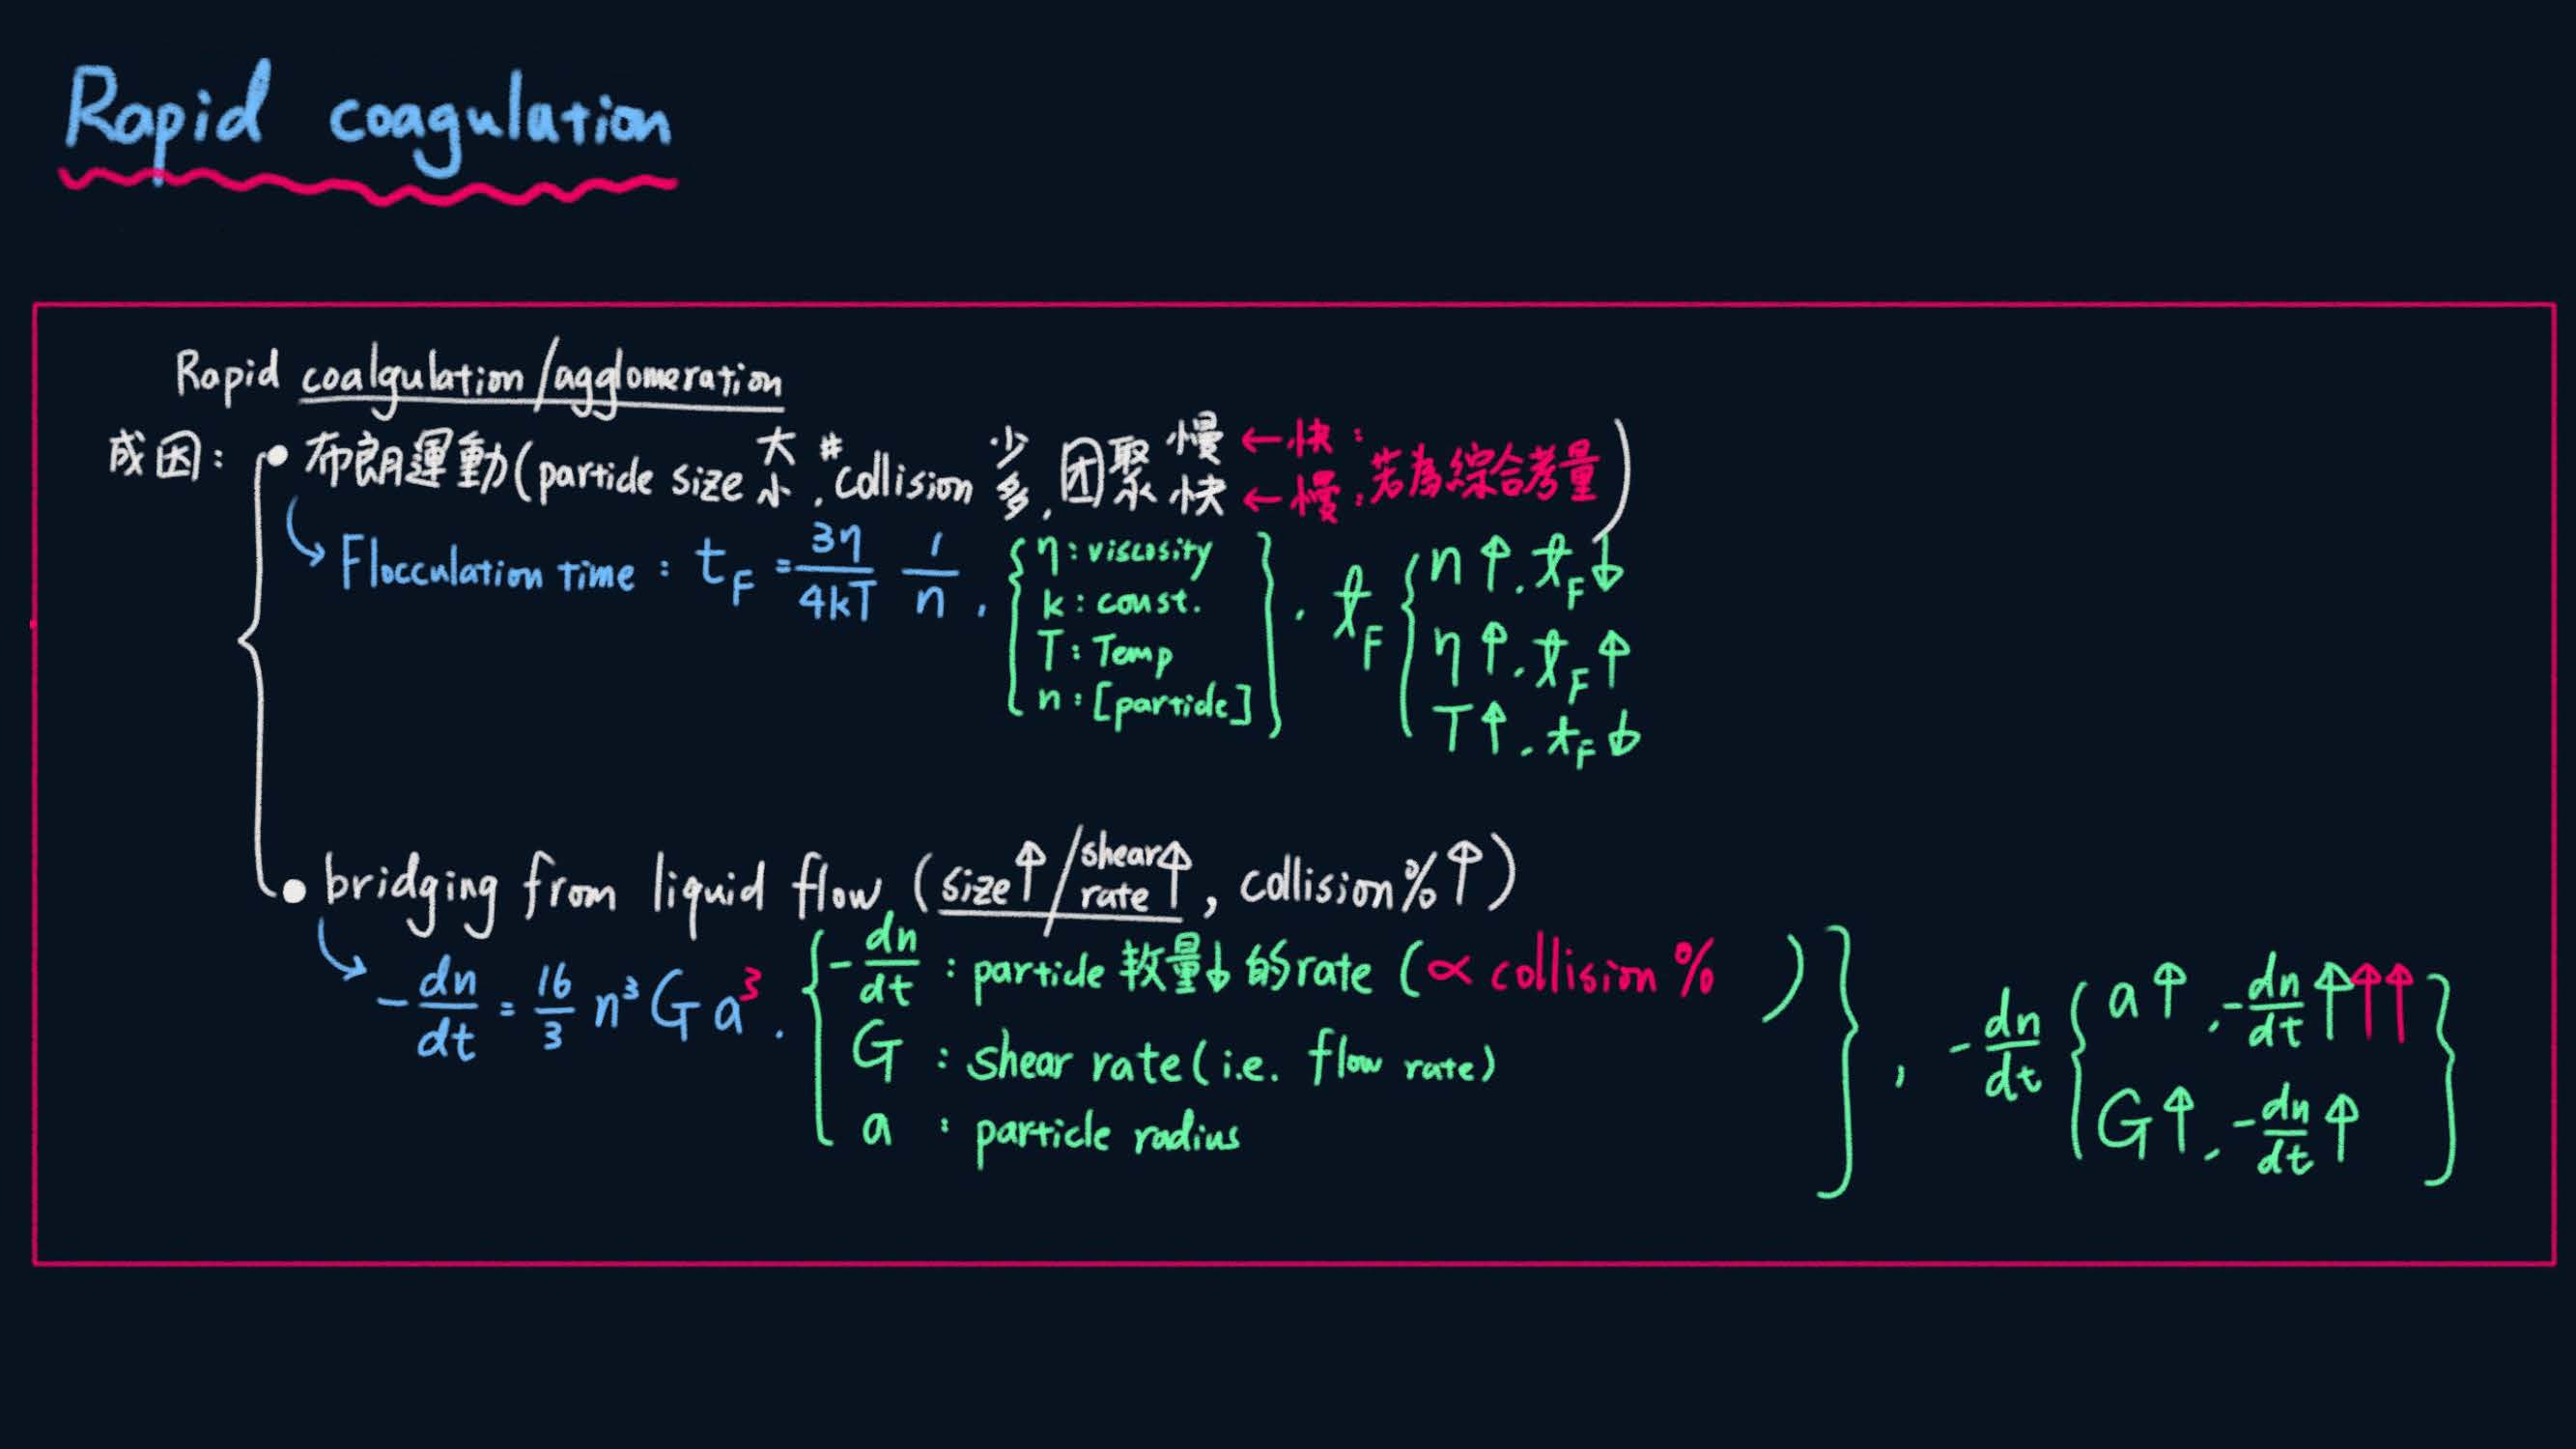 Rapid coagulation
Rapid coalgulation/agglomeration
成因:
• 布朗運動(particle size 大 小, # collision 少 多, 团聚 慢 快 ←快: ←慢: 若為綜合考量)
Flocculation time : t_F = 3η/4kT 1/n ,
η : viscosity
k : const.
T : Temp
n : [particle]
, t_F
n↑, t_F↓
η↑, t_F↑
T↑, t_F↓
• bridging from liquid flow (size↑/shear rate↑, collision%↑)
-dn/dt = 16/3 n³ G a³ ,
-dn/dt : particle 軟量↓的rate (∝ collision %)
G : shear rate (i.e. flow rate)
a : particle radius
, -dn/dt
a↑, -dn/dt↑↑↑
G↑, -dn/dt↑